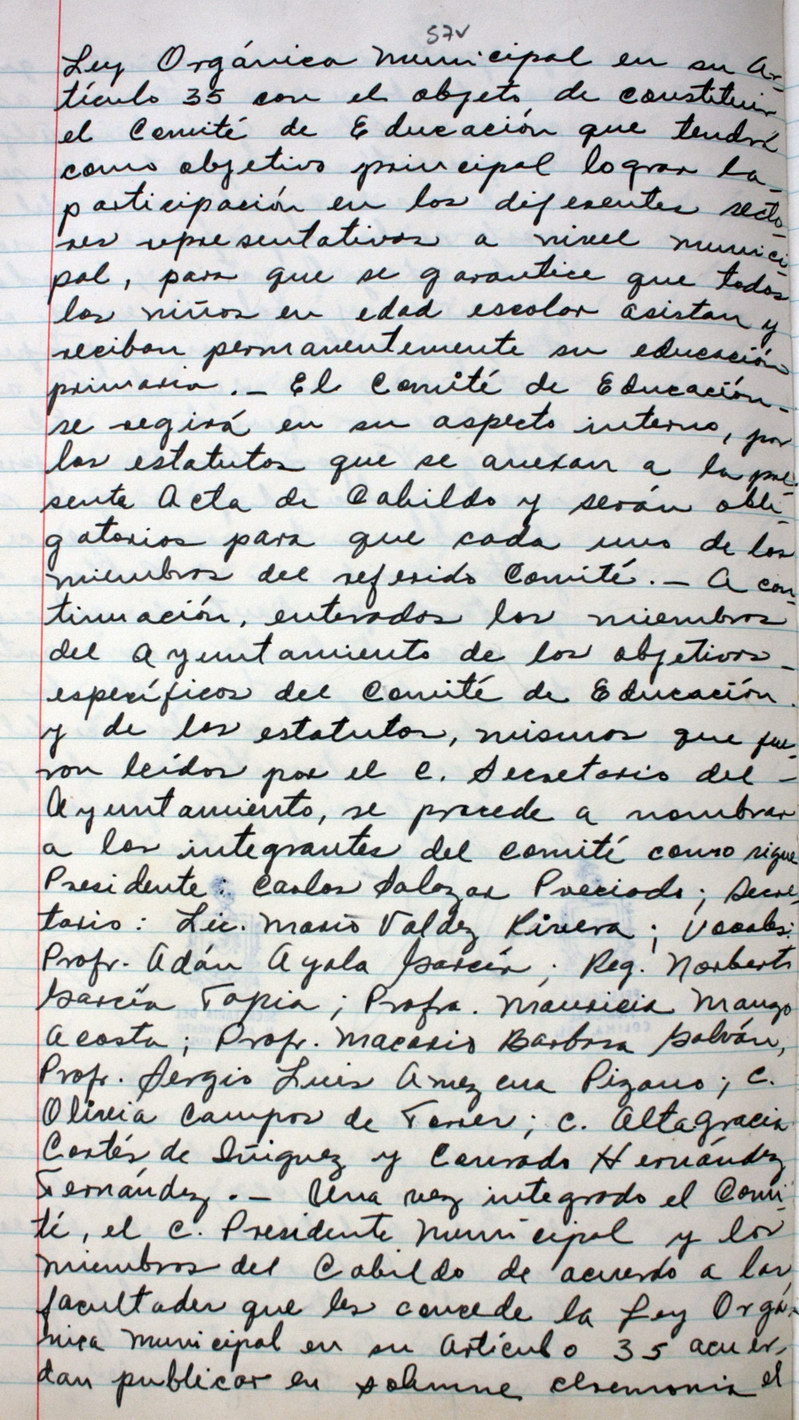 57v
Ley Orgánica Municipal en su Ar-
tículo 35 con el objeto de constituir
el Comité de Educación que tendrá
como objetivo principal lograr la -
participación en los diferentes secto-
res representativos a nivel munici-
pal, para que se garantice que todos
los niños en edad escolar asistan y
reciban permanentemente su educación
primaria. - El Comité de Educación -
se regirá en su aspecto interno, por
los estatutos que se anexan a la pre-
sente Acta de Cabildo y serán obli-
gatorios para que cada uno de los
miembros del referido Comité. - A con-
tinuación, enterados los miembros
del Ayuntamiento de los objetivos -
específicos del Comité de Educación.
y de los estatutos, mismos que fue-
ron leídos por el C. Secretario del -
Ayuntamiento, se procede a nombrar
a los integrantes del comité como sigue
Presidente: Carlos Salazar Preciado; Secre-
tario: Lic. Mario Valdez Rivera; Vocales:
Profr. Adán Ayala García; Reg. Norberto
García Tapia; Profra. Mauricia Mango
Acosta; Profr. Macario Barbosa Galván,
Profr. Sergio Luis Amezcua Pizano; C.
Olivia Campos de Ferrer; C. Altagracia
Cortés de Iñiguez y Conrado Hernández
Fernández. - Una vez integrado el Comi-
té, el C. Presidente Municipal y los
miembros del Cabildo de acuerdo a las
facultades que les concede la Ley Orgá-
nica Municipal en su Artículo 35 acuer-
dan publicar en solemne ceremonia el